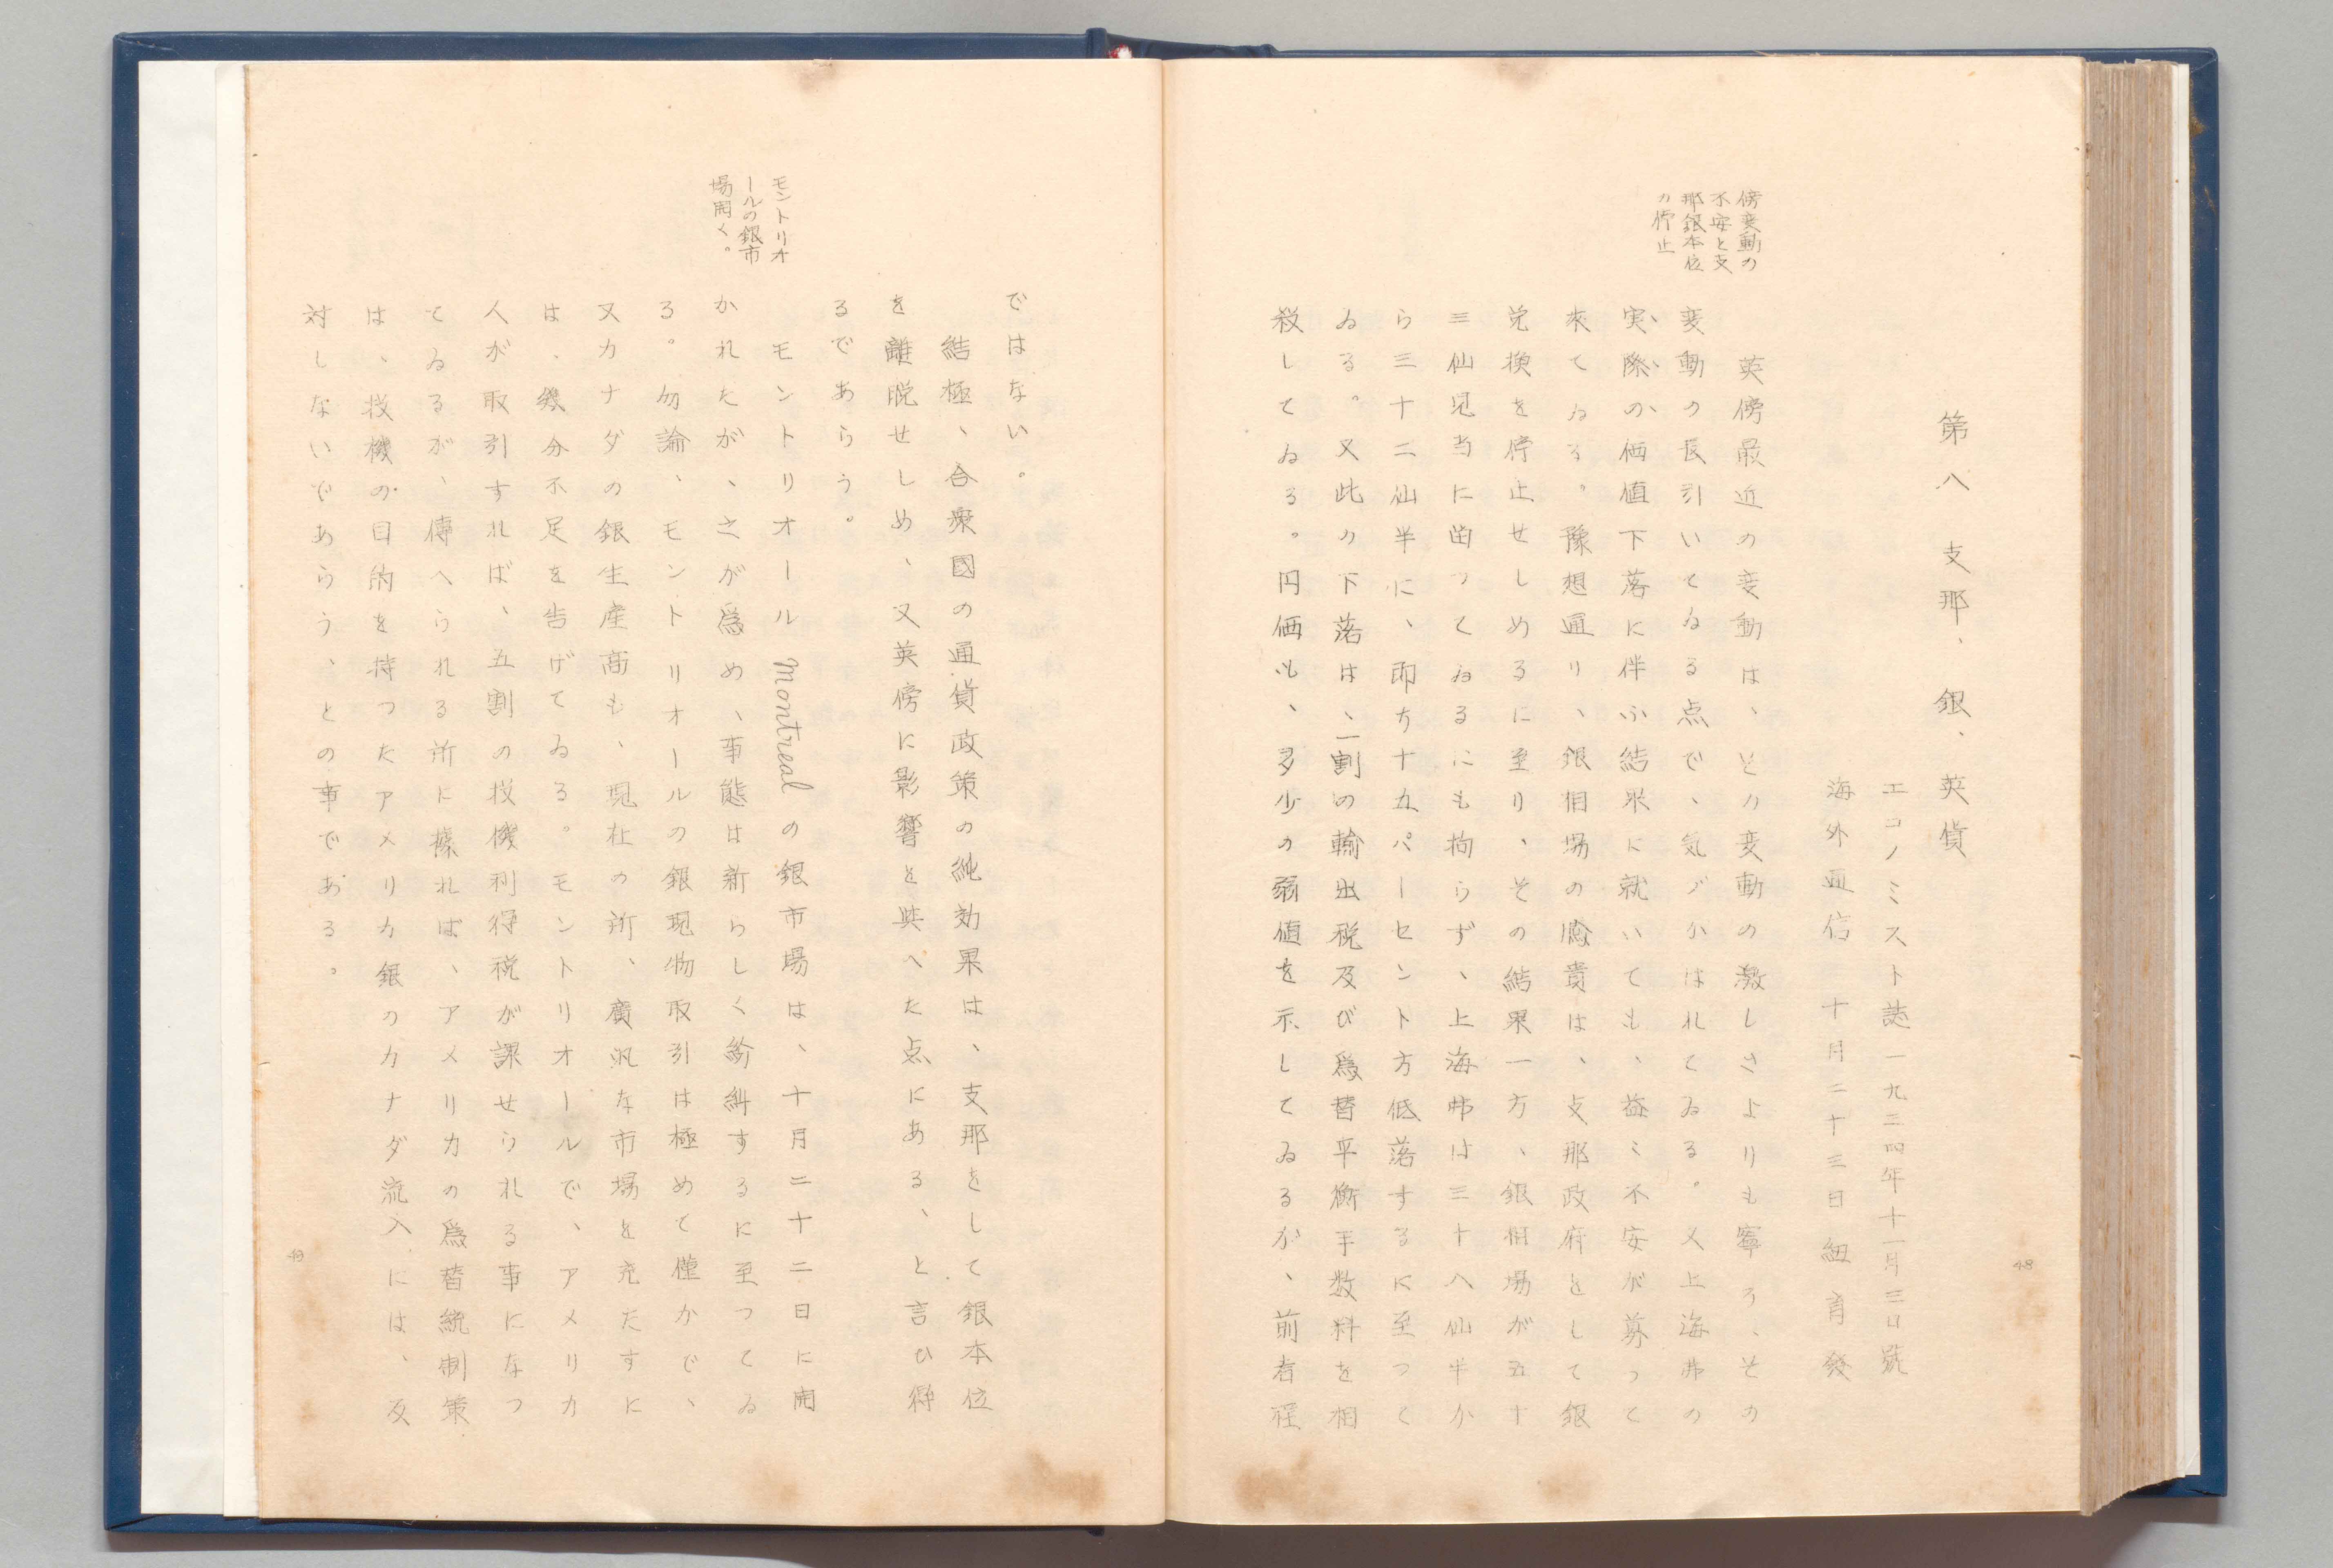 第八 支那、銀、英貨
エコノミスト誌一九三四年十一月三日號
海外通信 十月二十三日紐育發
傍変動の
不安と支
那銀本位
の停止
英傍最近の変動は、その変動の激しさよりも寧ろ、その
変動の長引いてゐる点で、気づかはれてゐる。又上海弗の
実際の価値下落に伴ふ結果に就いても、益ミ不安が募って
來てゐる。豫想通り、銀相場の騰貴は、支那政府をして銀
兌換を停止せしめるに至り、その結果一方、銀相場が五十
三仙見当に固ってゐるにも拘らず、上海弗は三十八仙半か
ら三十二仙半に、即ち十五パーセント方低落するに至つて
ゐる。又此の下落は、一割の輸出税及び爲替平衡手数料を相
殺してゐる。円価も、多少の弱値を示してゐるが、前者程
48
ではない。
結極、合衆國の通貨政策の純効果は、支那をして銀本位
を離脱せしめ、又英傍に影響を與へた点にある、と言ひ得
るであらう。
モントリオ
ールの銀市
場開く。
モントリオール Montreal の銀市場は、十月二十二日に開
かれたが、之が爲め、事態は新らしく紛糾するに至つてゐ
る。勿論、モントリオールの銀現物取引は極めて僅かで、
又カナダの銀生産高も、現在の所、廣汎な市場を充たすに
は、幾分不足を告げてゐる。モントリオールで、アメリカ
人が取引すれば、五割の投機利得税が課せられる事になつ
てゐるが、傳へられる所に據れば、アメリカの爲替統制策
は、投機の目的を持つたアメリカ銀のカナダ流入には、反
対しないであらう、との事である。
49